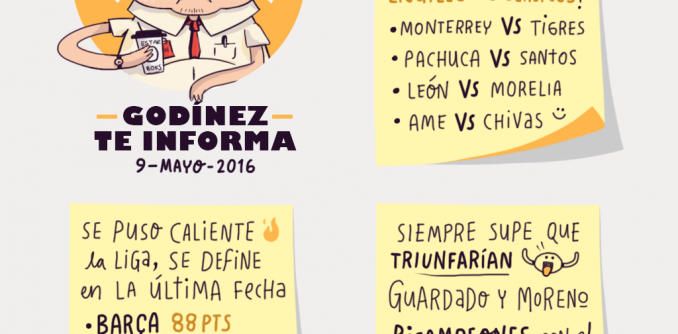 ESTAR
BOKS
GODÍNEZ
TE INFORMA
9-MAYO-2016
• MONTERREY VS TIGRES
• PACHUCA VS SANTOS
• LEÓN VS MORELIA
• AME VS CHIVAS
SE PUSO CALIENTE
la LIGA, SE DEFINE
en LA ÚLTIMA FECHA
• BARÇA 88 PTS
SIEMPRE SUPE QUE
TRIUNFARÍAN
GUARDADO Y MORENO
BICAMPEONES con el